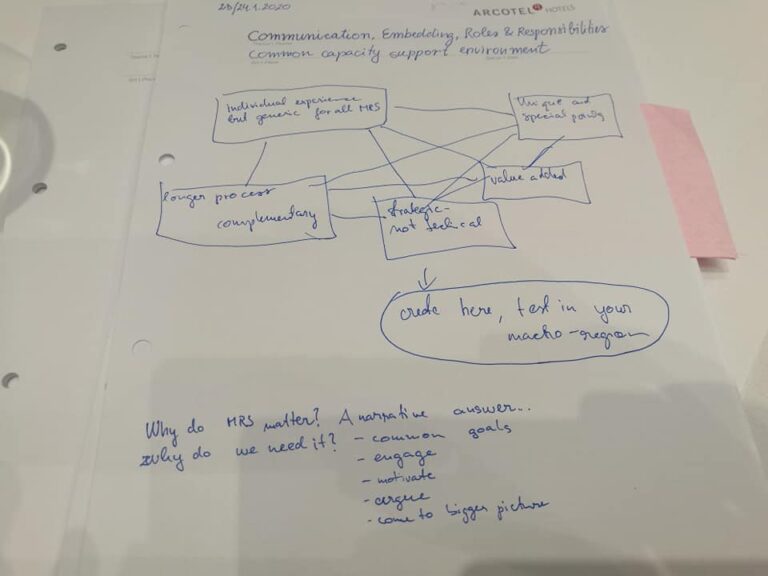 23/24.1.2020
ARCOTEL HOTELS
Communication, Embedding, Roles & Responsibilities
Common capacity support environment
Individual experience
but generic for all MRS
Unique and
special points
longer process
complementary
value added
Strategic -
not technical
create here, test in your
macro-region
Why do MRS matter? A narrative answer...
Why do we need it? - common goals
- engage
- motivate
- argue
- come to bigger picture